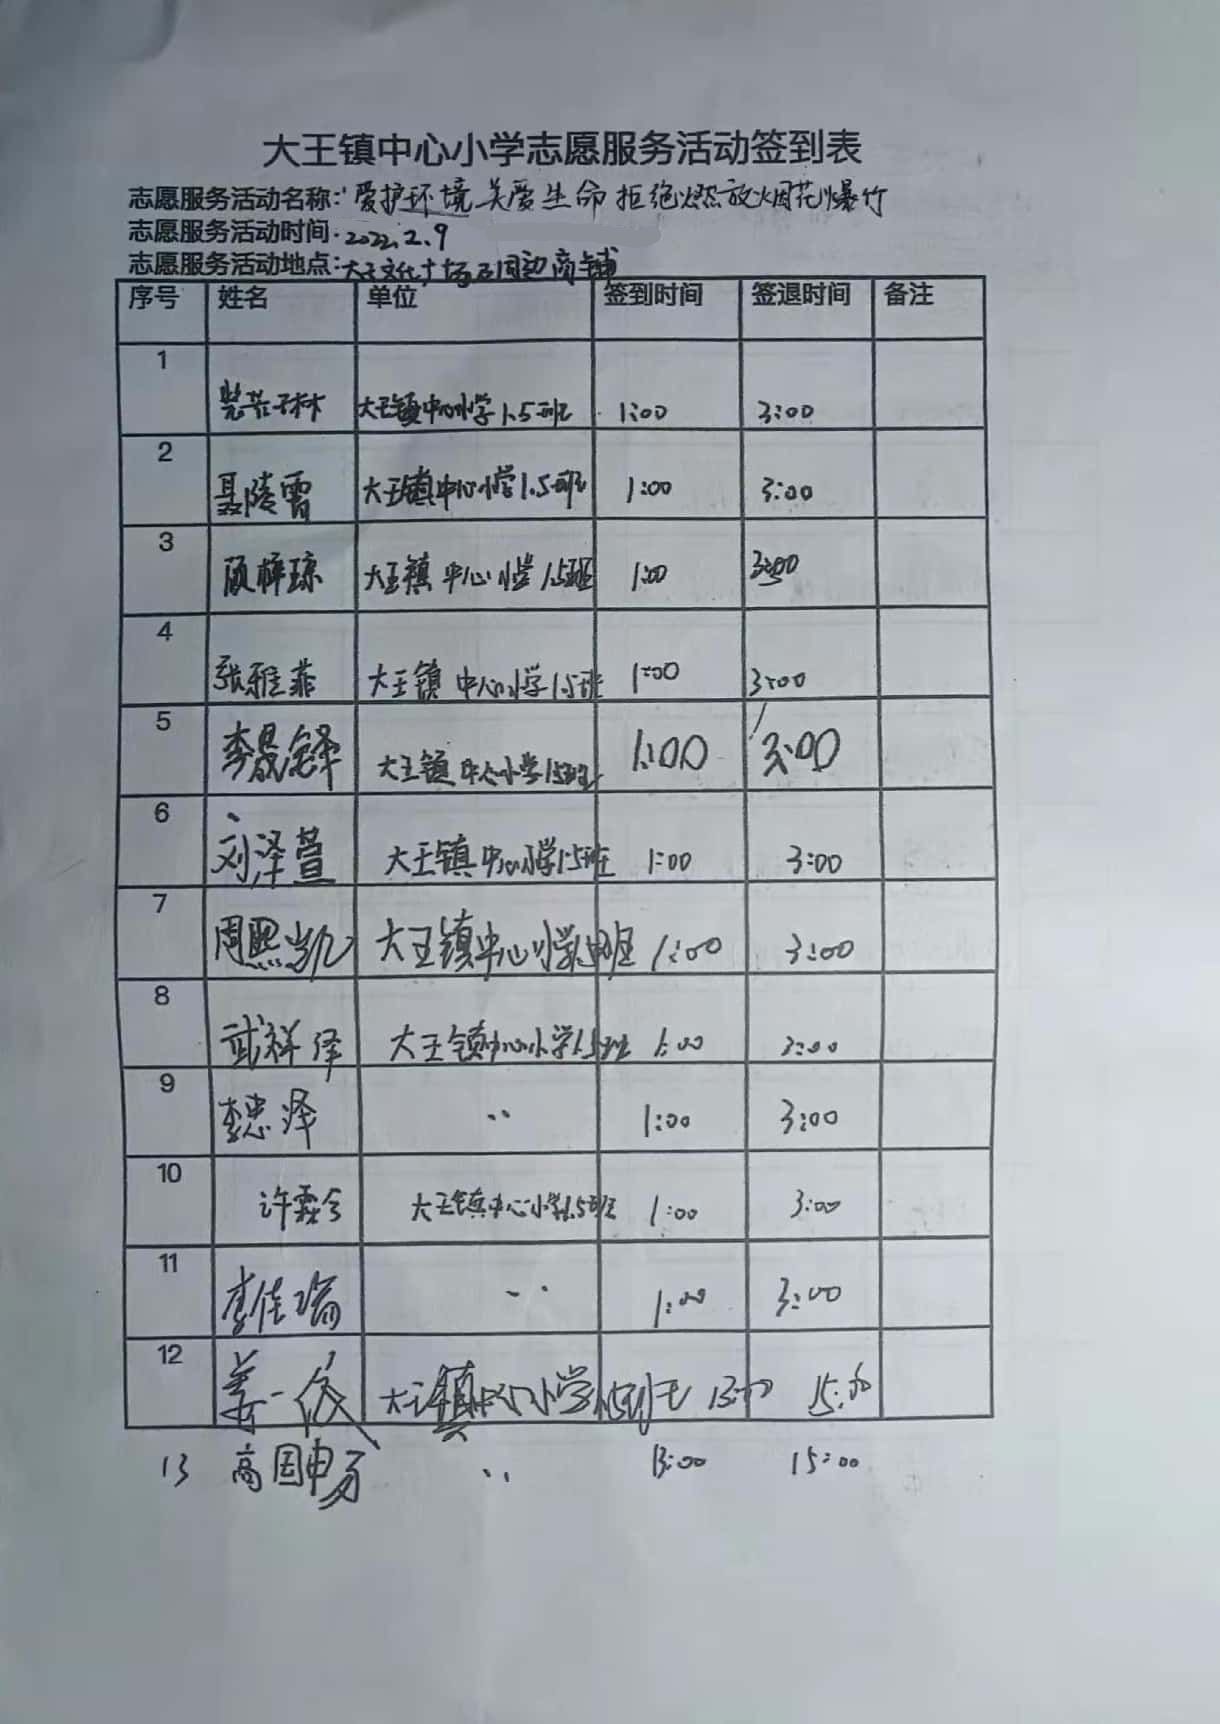 大王镇中心小学志愿服务活动签到表
志愿服务活动名称:爱护环境关爱生命拒绝燃放烟花爆竹
志愿服务活动时间:2022.2.9
志愿服务活动地点:大王文化广场及周边商铺
序号 姓名 单位 签到时间 签退时间 备注
1 大王镇中心小学1.5班 1:00 3:00
2 聂陵霄 大王镇中心小学1.5班 1:00 3:00
3 顾梓琼 大王镇中心小学1.5班 1:00 3:00
4 张雅菲 大王镇中心小学1.5班 1:00 3:00
5 李晟铎 大王镇中心小学1.5班 1:00 3:00
6 刘泽萱 大王镇中心小学1.5班 1:00 3:00
7 周熙凯 大王镇中心小学1.5班 1:00 3:00
8 武祥泽 大王镇中心小学1.5班 1:00 3:00
9 李忠泽 〃 1:00 3:00
10 许 大王镇中心小学1.5班 1:00 3:00
11 李佳瑞 〃 1:00 3:00
12 姜一依 大王镇中心小学1.5班 13:00 15:00
13 高国畅 〃 13:00 15:00